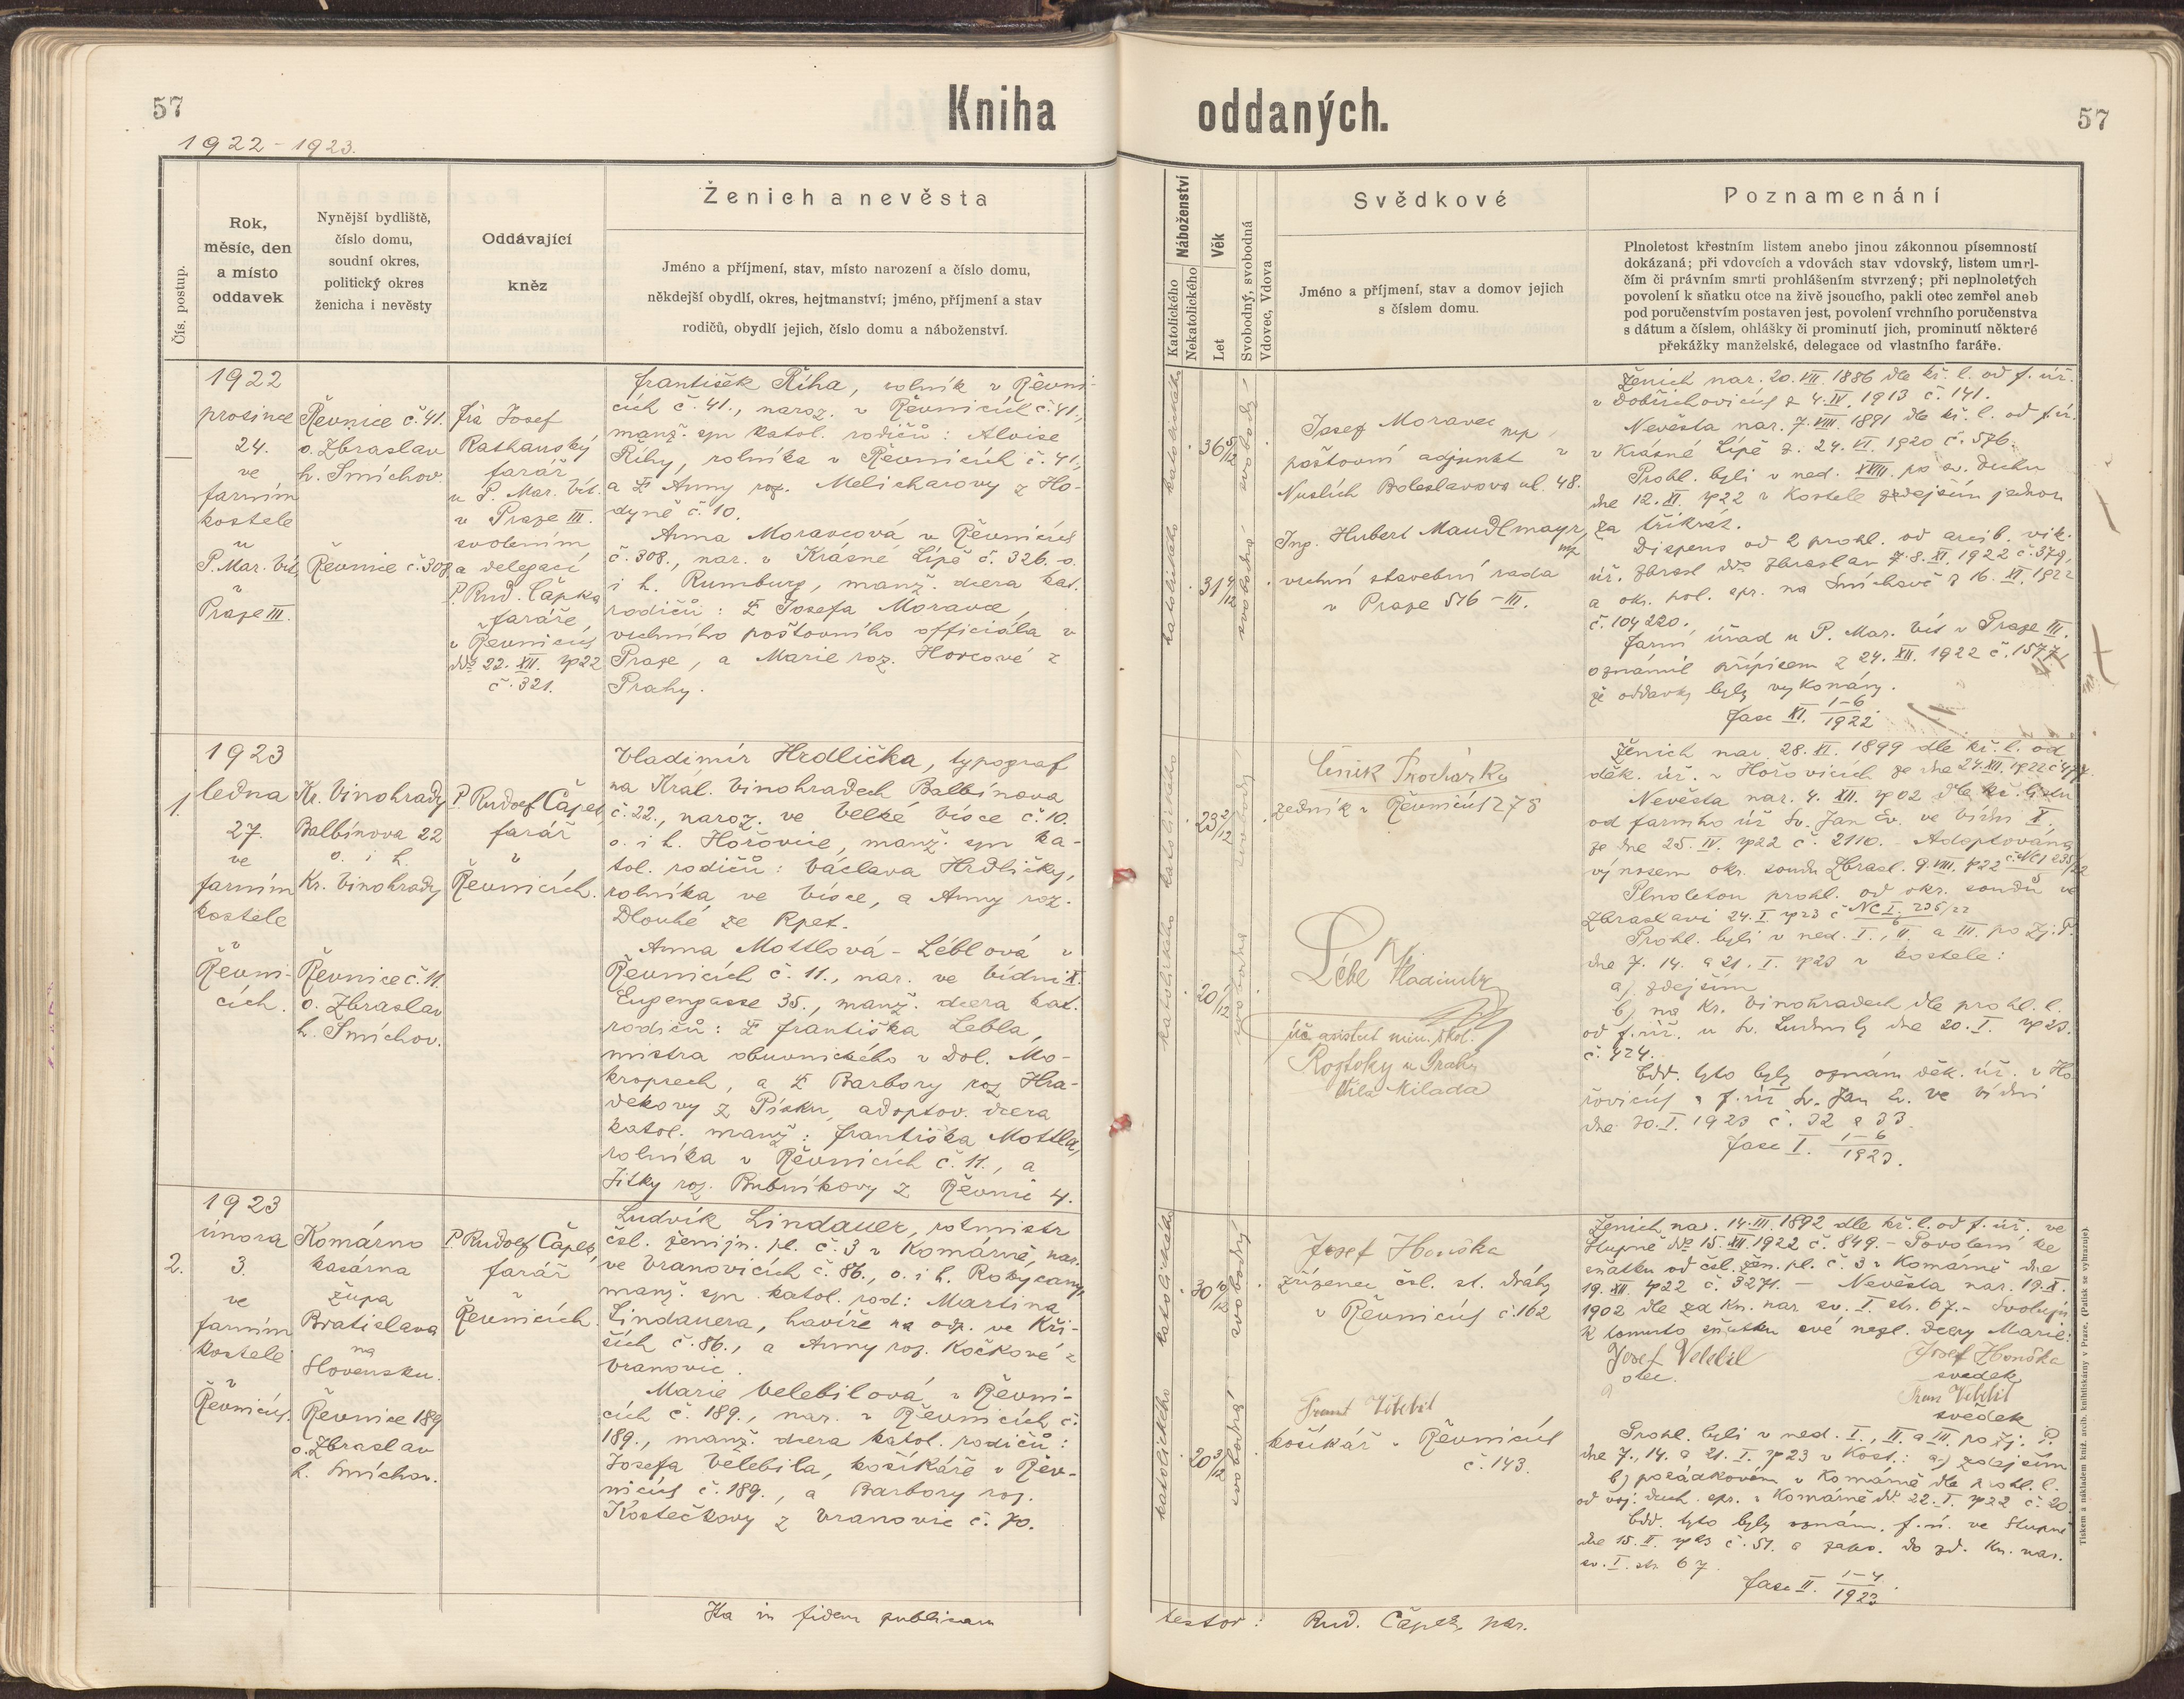 57
Kniha
oddaných.
57
1922 - 1923.
Čís. postup.
Rok,
měsíc, den
a místo
oddavek
Nynější bydliště,
číslo domu,
soudní okres,
politický okres
ženicha i nevěsty
Oddávající
kněz
Ženich a nevěsta
Jméno a příjmení, stav, místo narození a číslo domu,
někdejší obydlí, okres, hejtmanství; jméno, příjmení a stav
rodičů, obydlí jejich, číslo domu a náboženství.
Náboženství
Katolického
Nekatolického
Věk
Let
Svobodný, svobodná
Vdovec, Vdova
Svědkové
Jméno a příjmení, stav a domov jejich
s číslem domu.
Poznamenání
Plnoletost křestním listem anebo jinou zákonnou písemností
dokázaná; při vdovcích a vdovách stav vdovský, listem umrl-
čím či právním smrti prohlášením stvrzený; při neplnoletých
povolení k sňatku otce na živě jsoucího, pakli otec zemřel aneb
pod poručenstvím postaven jest, povolení vrchního poručenstva
s dátum a číslem, ohlášky či prominutí jich, prominutí některé
překážky manželské, delegace od vlastního faráře.
1922
prosince
24.
ve
farním
kostele
u
P. Mar. Vít.
v
Praze III.
Řevnice č. 41.
o. Zbraslav
h. Smíchov.
Řevnice č. 308
Josef
Rathauský
farář
u P. Mar. Vít.
v Praze III.
svolením
a delegací
P. Rud. Čápka
faráře,
v Řevnicích
ddo 22. XII. 1922
č. 321.
František Říha, rolník v Řevni-
cích č. 41., naroz. v Řevnicích č. 41.,
manž. syn katol. rodičů: Aloise
Říhy, rolníka v Řevnicích č. 41.,
a Ł Anny roz. Melicharovy z Ho-
dyně č. 10.
Anna Moravcová v Řevnicích
č. 308., nar. v Krásné Lípě č. 326. o.
i h. Rumburg, manž. dcera kat.
rodičů: Ł Josefa Moravce,
vrchního poštovního officiála v
Praze, a Marie roz. Horcové z
Prahy.
katolického
katolického
36 5/12
31 4/12
svobodný
svobodná
Josef Moravec mp,
poštovní adjunkt v
Nuslích Boleslavova ul. 48.
Ing. Hubert Maudlmayr,
mp
vrchní stavební rada
v Praze 516 - III.
Ženich nar. 20. VII. 1886 dle kř. l. od f. úř.
v Dobřichovicích z 4. IV. 1913 č. 141.
Nevěsta nar. 7. VIII. 1891 dle kř. l. od f. ú.
v Krásné Lípě z. 24. VI. 1920 č. 576.
Prohl. byli v ned. XXIII. po sv. Duchu
dne 12. XI. 1922 v kostele zdejším jednou
za třikrát.
Dispens od 2 prohl. od arcib. vik.
úř. Zbrasl ddo Zbraslav 7. 8. XI. 1922 č. 379,
a okr. pol. spr. na Smíchově z 16. XI. 1922
č. 104220.
Farní úřad u P. Mar. Vít v Praze III.
oznámil přípisem z 24. XII. 1922 č. 1577
že oddavky byly vykonány.
Fasc XI. 1-6/1922
1923
1.
ledna
27.
ve
farním
kostele
v
Řevni-
cích.
Kr. Vinohrady
Balbínova 22
o. i h.
Kr. Vinohrady
Řevnice č. 11.
o. Zbraslav
h. Smíchov.
P. Rudolf Čápek,
farář
v
Řevnicích.
Vladimír Hrdlička, typograf
na Král. Vinohradech Balbínova
č. 22., naroz. ve Velké Vísce č. 10.
o. i h. Hořovice, manž. syn ka-
tol. rodičů: Václava Hrdličky,
rolníka ve Vísce, a Anny roz.
Dlouhé ze Rpet.
Anna Mottlová - Léblová v
Řevnicích č. 11., nar. ve Vídni X.
Eugengasse 35., manž. dcera kat.
rodičů: Ł Františka Lébla,
mistra obuvnického v Dol. Mo-
kropsech, a Ł Barbory roz Hra-
dekovy z Písku, adoptov. dcera
katol. manž: Františka Mottla,
rolníka v Řevnicích č. 11., a
Jitky roz. Bubníkovy z Řevnic 4.
katolického
katolického
23 2/12
20 1/12
svobodný
svobodná
Čeněk Procházka
zedník v Řevnicích 278
Lébl Vladimír
úč. asistent min. škol.
Roztoky u Prahy
Vila Milada
Ženich nar. 28. XI. 1899 dle kř. l. od
děk. úř. v Hořovicích ze dne 24. XII. 1922 č 477.
Nevěsta nar. 4. XII. 1902 dle kř. listu
od farního úř Sv. Jan Ev. ve Vídni X.
ze dne 25. IV. 1922 č. 2110. - Adoptována
výnosem okr. soudu Zbrasl. 9. VIII. 1922
Plnoletou prohl. od okr. soudu ve
Zbraslavi 24. I. 1923 č NC I. 236/22 6
Prohl. byli v ned. I., II. a III. po Zj. P.
dne 7. 14. a 21. I. 1923 v kostele:
a) zdejším
b) na Kr. Vinohradech dle prohl. l.
od f. úř. u Sv. Ludmily dne 20. I. 1923.
č. 424.
Odd. tyto byly oznám děk. úř. v Ho
řovicích a f. úř Sv. Jan Ev. ve Vídni
dne 30. I. 1923 č. 32 a 33.
Fasc I. 1-6/1923.
1923
2.
února
3.
ve
farním
kostele
v
Řevnicích.
Komárno
kasárna
župa
Bratislava
na
Slovensku.
Řevnice 189
o. Zbraslav
h. Smíchov.
P. Rudolf Čápek,
farář
v
Řevnicích.
Ludvík Lindauer, rotmistr
čsl. ženijn. pl. č. 3 v Komárně, nar.
ve Vranovicích č. 86., o. i h. Rokycany,
manž. syn katol. rod: Martina
Lindauera, havíře na odp. ve Kři-
ších č. 86., a Anny roz. Kočkové z
Vranovic.
Marie Velebilová v Řevni-
cích č. 189., nar. v Řevnicích č.
189., manž. dcera katol. rodičů:
Josefa Velebila, košíkáře v Řev-
nicích č. 189., a Barbory roz.
Kostečkovy z Vranovic č. 70.
katolického
katolického
30 10/12
20 3/12
svobodný
svobodná
Josef Honška
zřízenec čsl. st. dráhy
v Řevnicích č. 162
Frant Velebil
košíkář v Řevnicích
č. 143.
Ženich nar. 14. III. 1892 dle kř. l. od f. úř. ve
Stupně ddo 15. XII. 1922 č. 849. - Povolení ke
sňatku od čsl. žen. pl. č. 3 v Komárně dne
19. XII 1922 č. 3271. - Nevěsta nar. 19. X.
1902 dle zd kn. nar sv. I. str. 67. - Svoluji
k tomuto sňatku své nezl. dcery Marie:
Josef Velebil
otec.
Josef Honška
svědek
Fran Velebil
svědek
Prohl. byli v ned. I., II. a III. po Zj. P.
dne 7., 14. a 21. I. 1923 v kost.: a) zdejším
b) posádkovém v Komárně dle prohl. l.
od voj. duch. spr. v Komárně dd. 22. I. 1922 č. 20.
Odd. tyto byly oznám. f. ú. ve Stupně
dne 15. II. 1923 č. 51. a zazn. do zd. kn. nar.
sv. I. str. 67.
Fasc II. 1-4/1923.
Tiskem a nákladem kníž. arcib. knihtiskárny v Praze. (Patisk se vyhrazuje).
Ita in fidem publicam
testor: Rud. Čápek par.